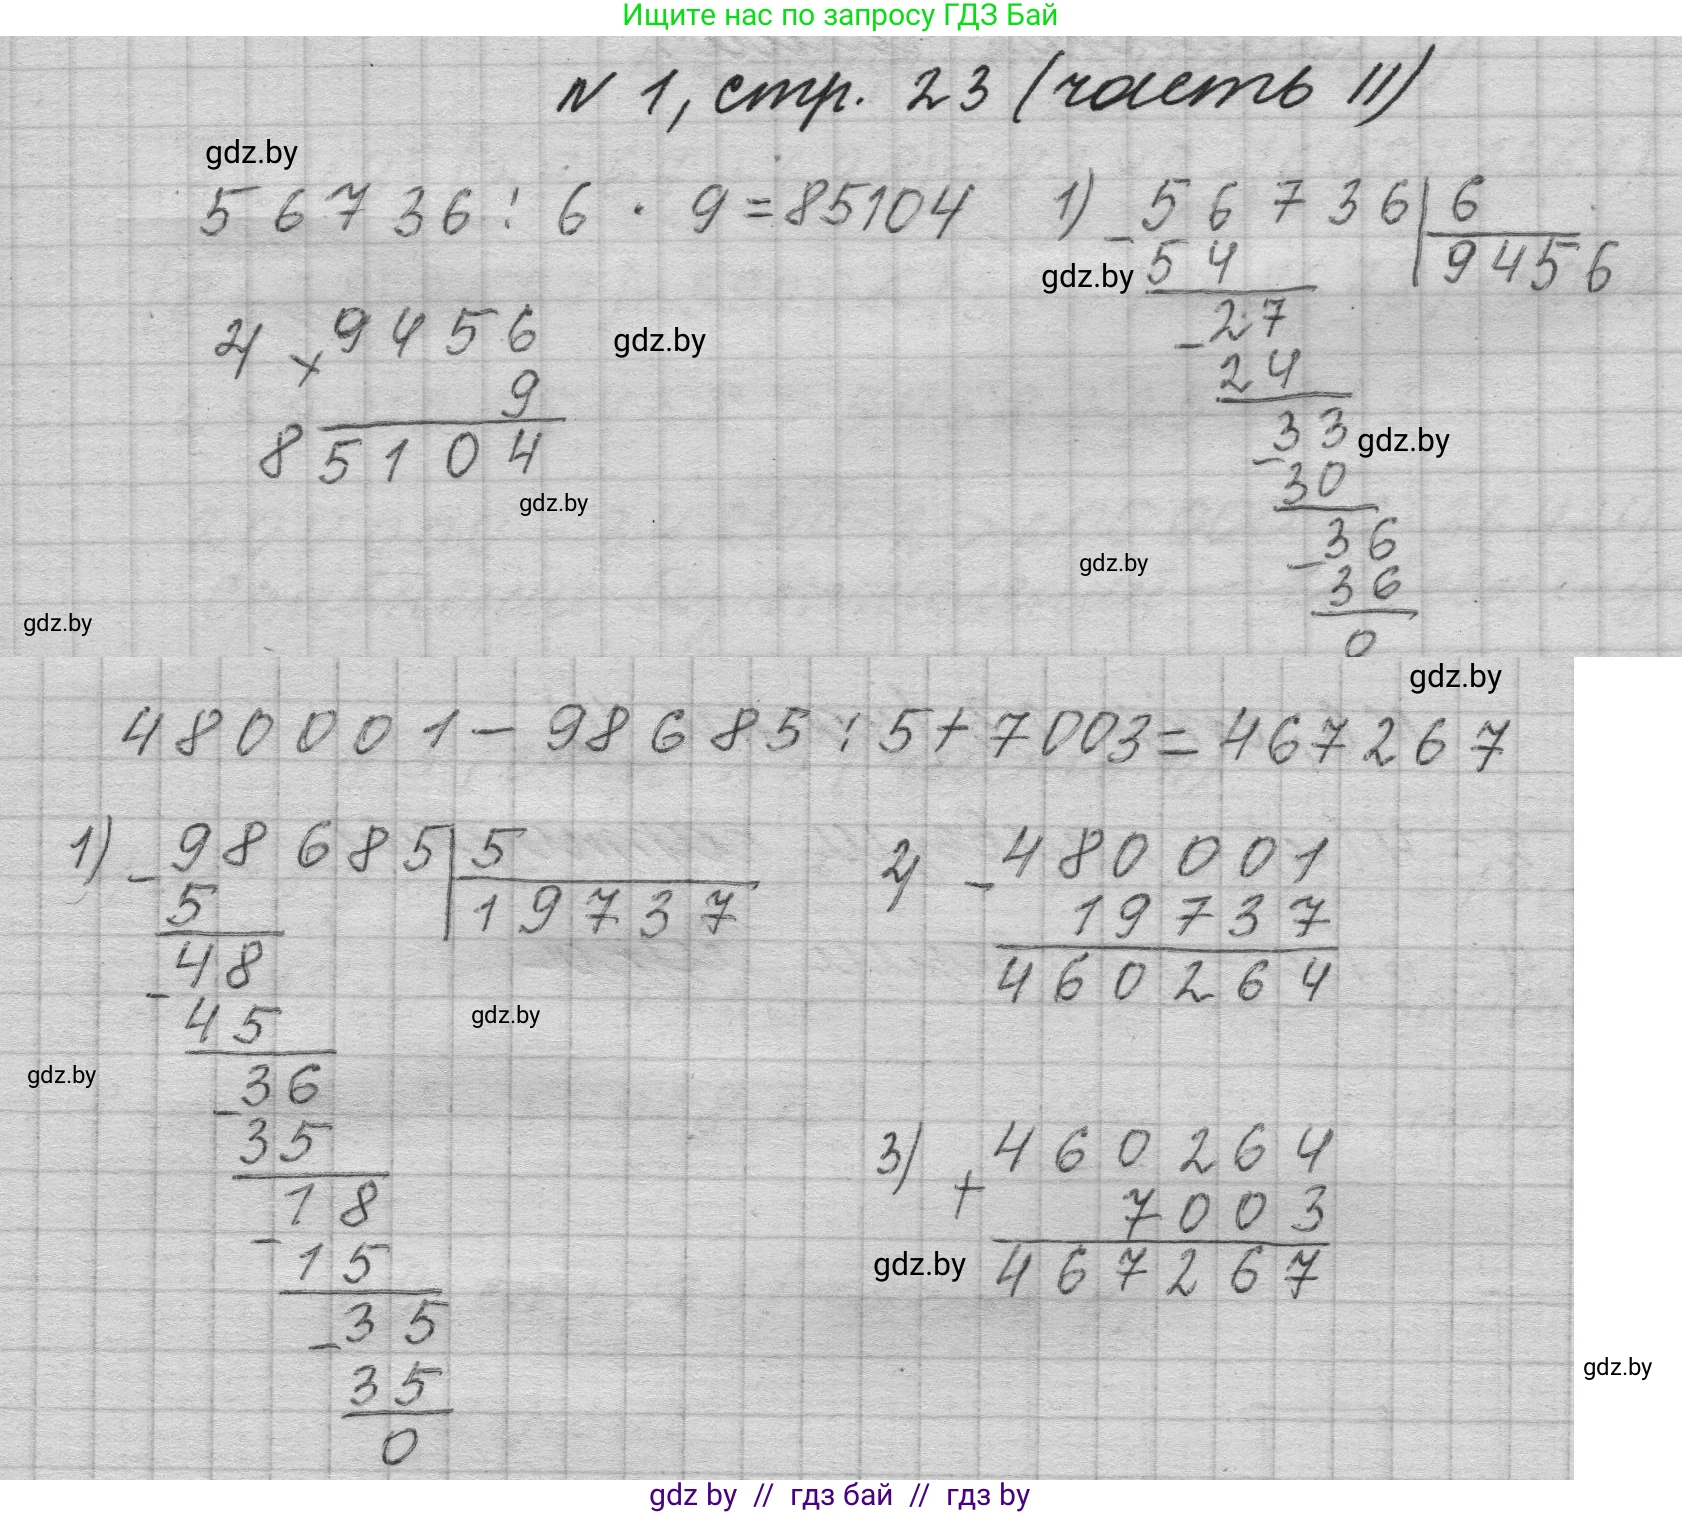 Ищите нас по запросу ГДЗ Бай
N 1, стр. 23 (часть II)
gdz.by
56736 : 6 · 9 = 85104
1) 56736 | 6
- 54 | 9456
gdz.by
- 27
24
- 33
gdz.by
30
- 36
36
0
2) × 9456
gdz.by
9
85104
gdz.by
gdz.by
gdz.by
gdz.by
480001 - 98685 : 5 + 7003 = 467267
1) - 98685 | 5
5 | 19737
- 48
45
gdz.by
gdz.by
- 36
35
- 18
15
- 35
35
0
2) - 480001
19737
460264
3) + 460264
7003
gdz.by
467267
gdz.by
gdz by // гдз бай // гдз by